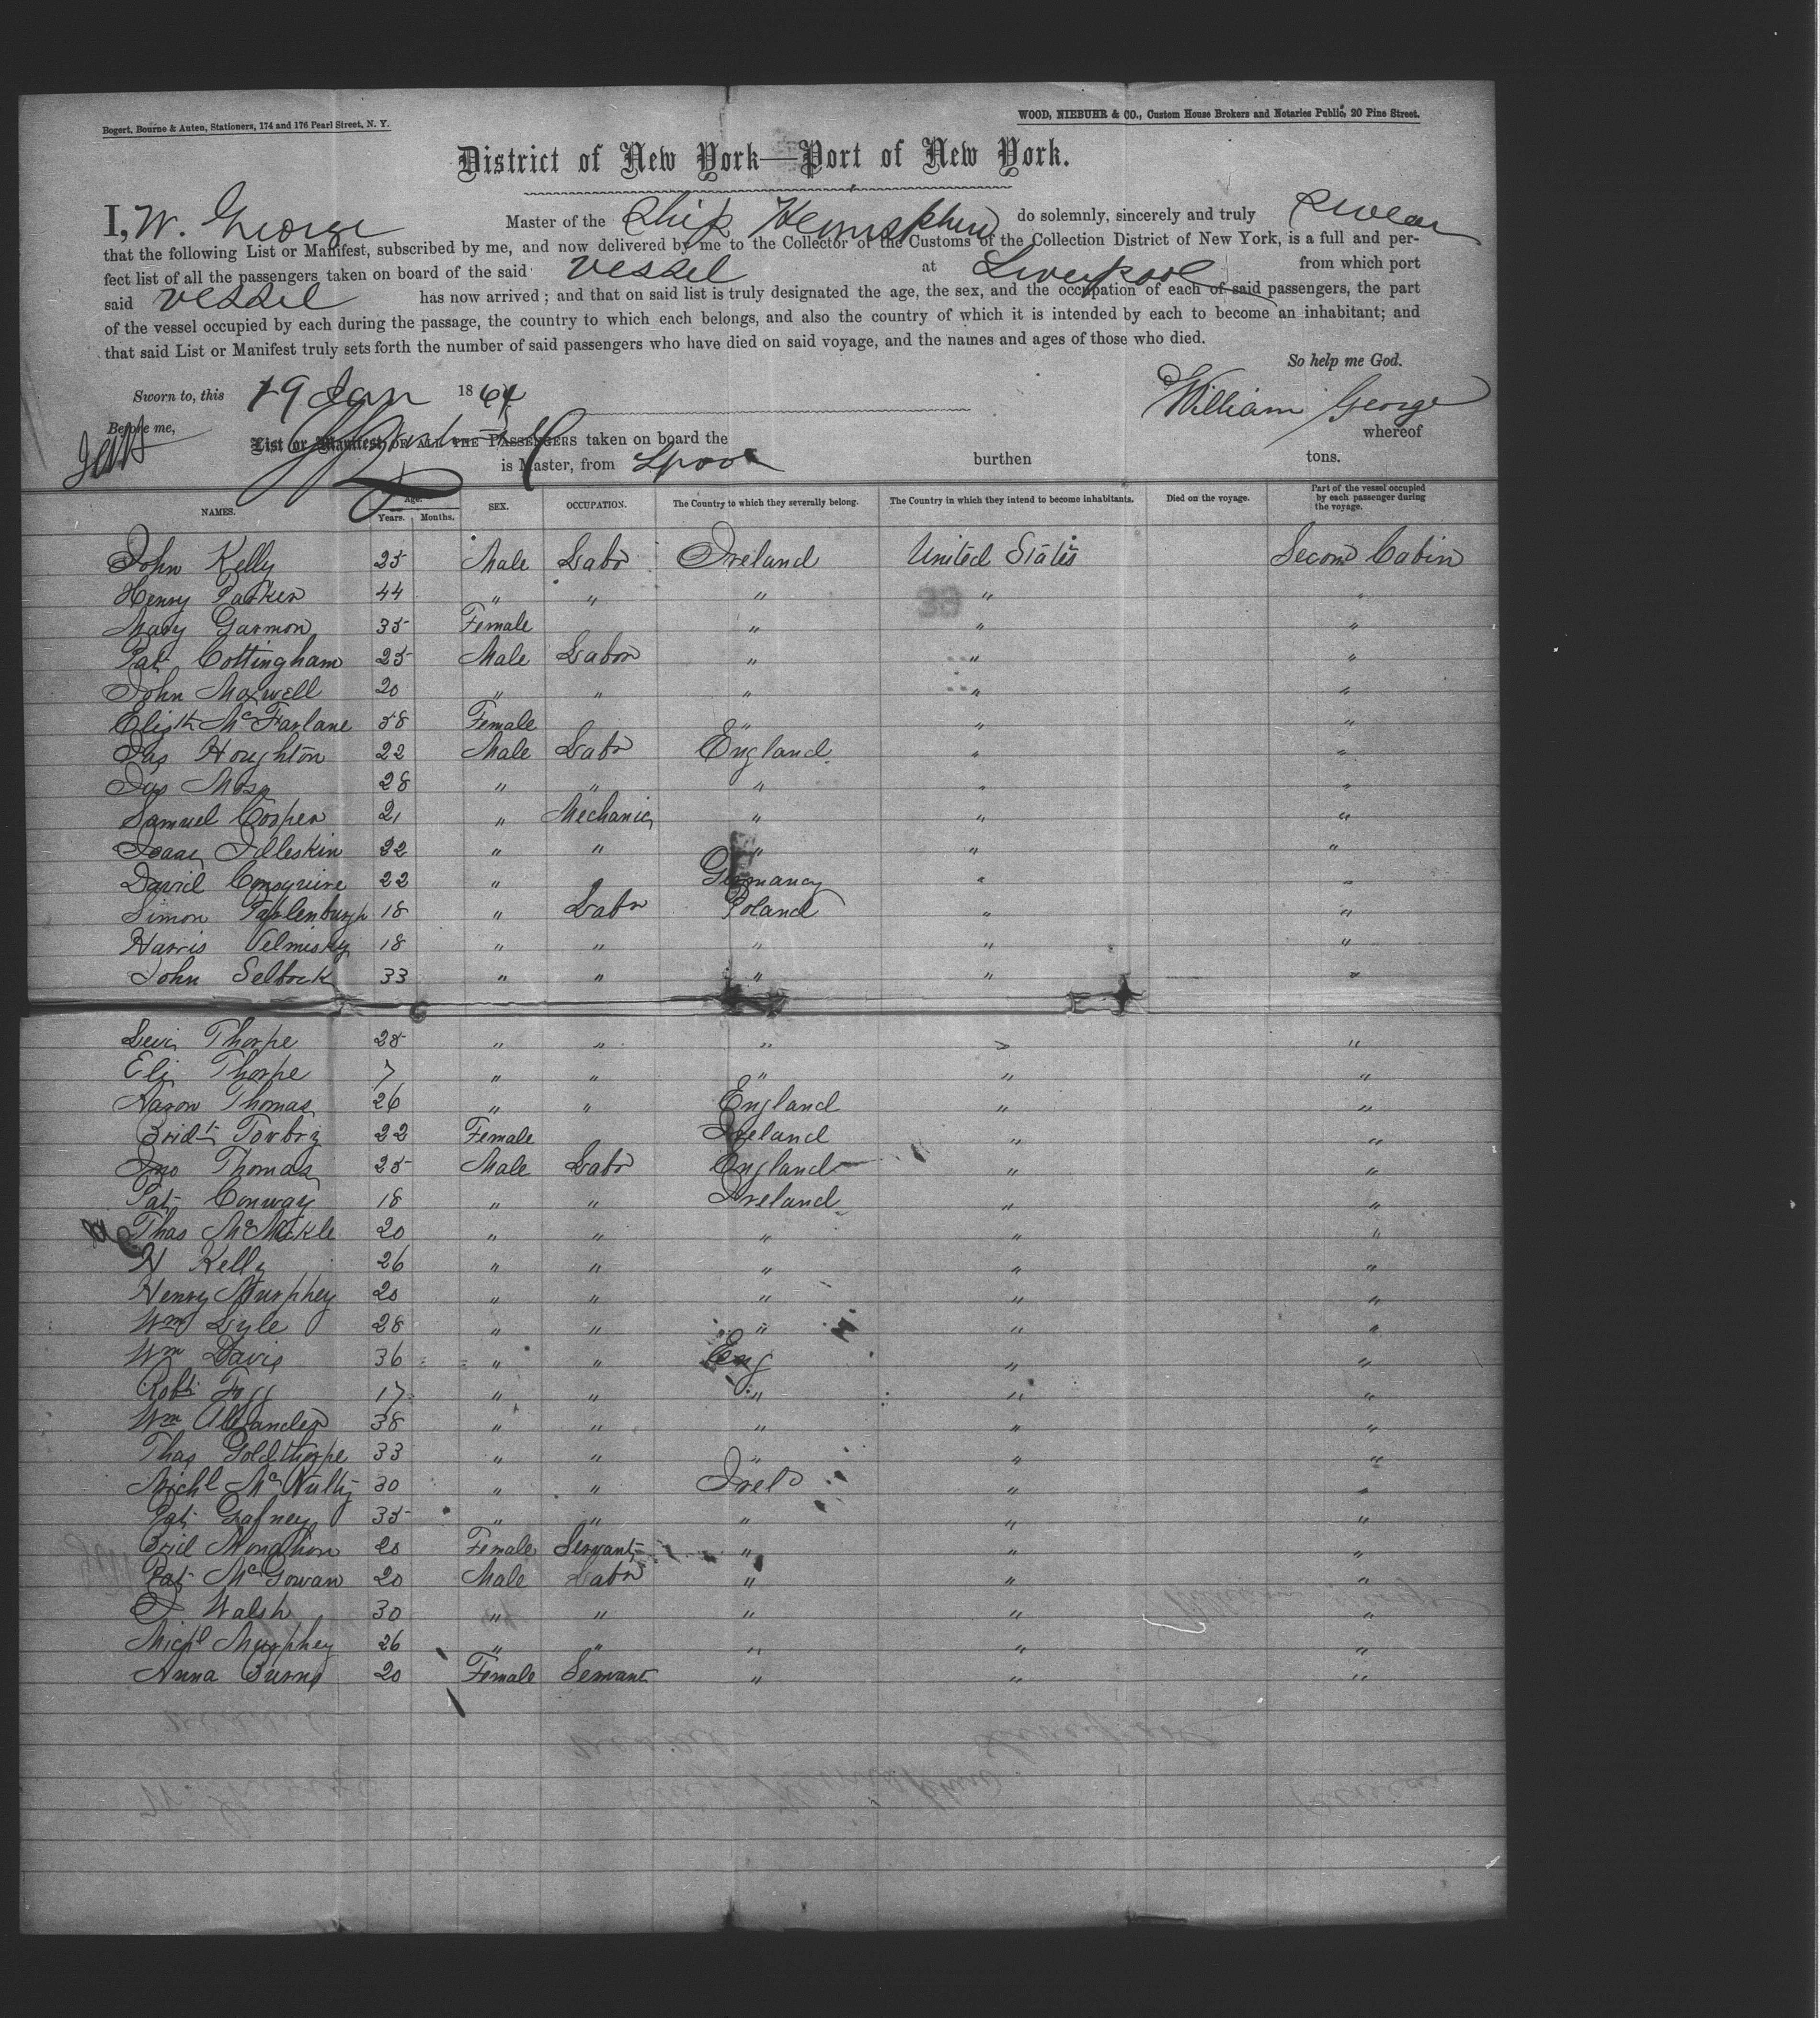 Bogert, Bourne & Auten, Stationers, 174 and 176 Pearl Street, N. Y.
WOOD, NIEBUHR & CO., Custom House Brokers and Notaries Public, 20 Pine Street.
District of New York—Port of New York.
I, W. George Master of the Ship Hemisphere do solemnly, sincerely and truly swear
that the following List or Manifest, subscribed by me, and now delivered by me to the Collector of the Customs of the Collection District of New York, is a full and per-
fect list of all the passengers taken on board of the said vessel at Liverpool from which port
said vessel has now arrived; and that on said list is truly designated the age, the sex, and the occupation of each of said passengers, the part
of the vessel occupied by each during the passage, the country to which each belongs, and also the country of which it is intended by each to become an inhabitant; and
that said List or Manifest truly sets forth the number of said passengers who have died on said voyage, and the names and ages of those who died.
So help me God.
Sworn to, this 19 Jan 1864 William George
Before me, whereof
List or Manifest, OF ALL THE PASSENGERS taken on board the
is Master, from Lpool burthen tons.
NAMES. Age. Years. Months. SEX. OCCUPATION. The Country to which they severally belong. The Country in which they intend to become inhabitants. Died on the voyage. Part of the vessel occupied by each passenger during the voyage.
John Kelly 25 Male Labr Ireland United States Second Cabin
Henry Parker 44 " " " " "
Mary Garmon 35 Female " " "
Pat Cottingham 25 Male Labor " " "
John Maxwell 20 " " " " "
Elisth McFarlane 38 Female " " "
Jas Houghton 22 Male Labr England " "
Jas Moss 28 " " " " "
Samuel Cooper 21 " Mechanic " " "
Isaac 22 " " " " "
David 22 " Germany " "
Simon 18 " Labr Poland " "
Harris 18 " " " " "
John Selbock 33 " " " " "
Levi Thorpe 28 " " " " "
Eli Thorpe 7 " " " " "
Aaron Thomas 26 " " England " "
Bridt 22 Female Ireland " "
Jno Thomas 25 Male Labr England " "
Pat Conway 18 " " Ireland " "
Thos McMickle 20 " " " " "
H Kelly 26 " " " " "
Henry Murphey 20 " " " " "
Wm Lyle 28 " " " " "
Wm Davis 36 " " Eng " "
Robt Fogg 17 " " " " "
Wm Alexander 38 " " " " "
Thos Goldthorpe 33 " " " " "
Michl McNulty 30 " " Ireld " "
Pat Gafney 35 " " " " "
Brid Monghon 20 Female Servant " " "
Pat McGowan 20 Male Labr " " "
Walsh 30 " " " " "
Michl Murphey 26 " " " " "
Anna Burns 20 Female Servant " " "